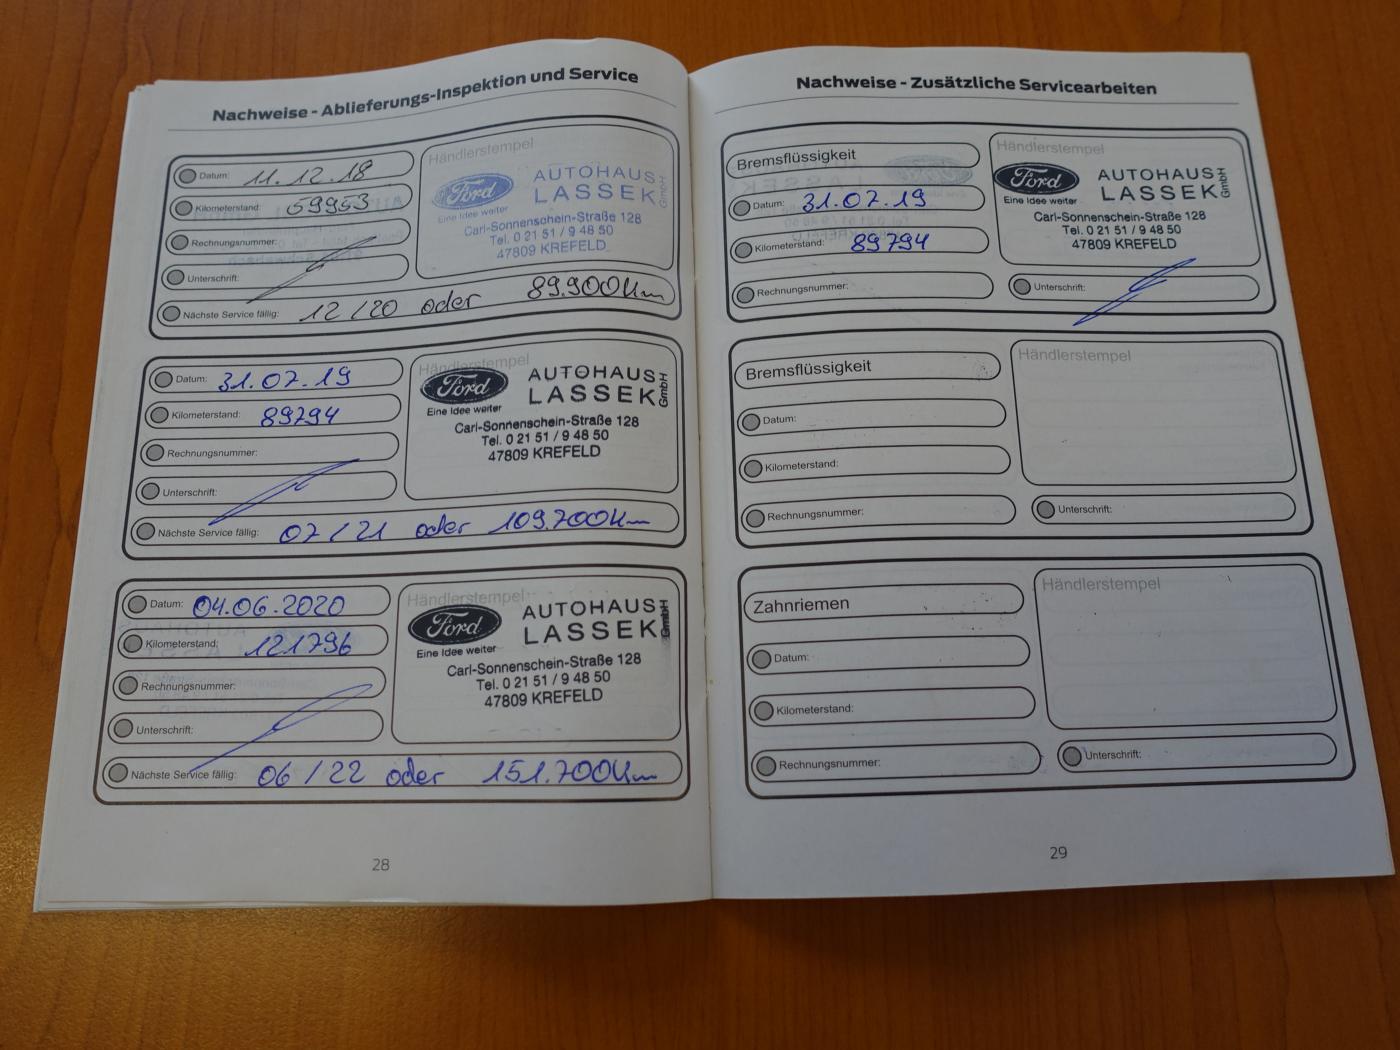 Nachweise - Ablieferungs-Inspektion und Service
Datum: 11.12.18
Kilometerstand: 59953
Rechnungsnummer:
Unterschrift:
Nächste Service fällig: 12/20 oder 89.900Km
Händlerstempel
Ford
Eine Idee weiter
AUTOHAUS
LASSEK GmbH
Carl-Sonnenschein-Straße 128
Tel. 0 21 51 / 9 48 50
47809 KREFELD
Datum: 31.07.19
Kilometerstand: 89794
Rechnungsnummer:
Unterschrift:
Nächste Service fällig: 07/21 oder 109.700Km
Händlerstempel
Ford
Eine Idee weiter
AUTOHAUS
LASSEK GmbH
Carl-Sonnenschein-Straße 128
Tel. 0 21 51 / 9 48 50
47809 KREFELD
Datum: 04.06.2020
Kilometerstand: 121796
Rechnungsnummer:
Unterschrift:
Nächste Service fällig: 06/22 oder 151.700Km
Händlerstempel
Ford
Eine Idee weiter
AUTOHAUS
LASSEK GmbH
Carl-Sonnenschein-Straße 128
Tel. 0 21 51 / 9 48 50
47809 KREFELD
28
Nachweise - Zusätzliche Servicearbeiten
Bremsflüssigkeit
Datum: 31.07.19
Kilometerstand: 89794
Rechnungsnummer:
Händlerstempel
Ford
Eine Idee weiter
AUTOHAUS
LASSEK GmbH
Carl-Sonnenschein-Straße 128
Tel. 0 21 51 / 9 48 50
47809 KREFELD
Unterschrift:
Bremsflüssigkeit
Datum:
Kilometerstand:
Rechnungsnummer:
Händlerstempel
Unterschrift:
Zahnriemen
Datum:
Kilometerstand:
Rechnungsnummer:
Händlerstempel
Unterschrift:
29